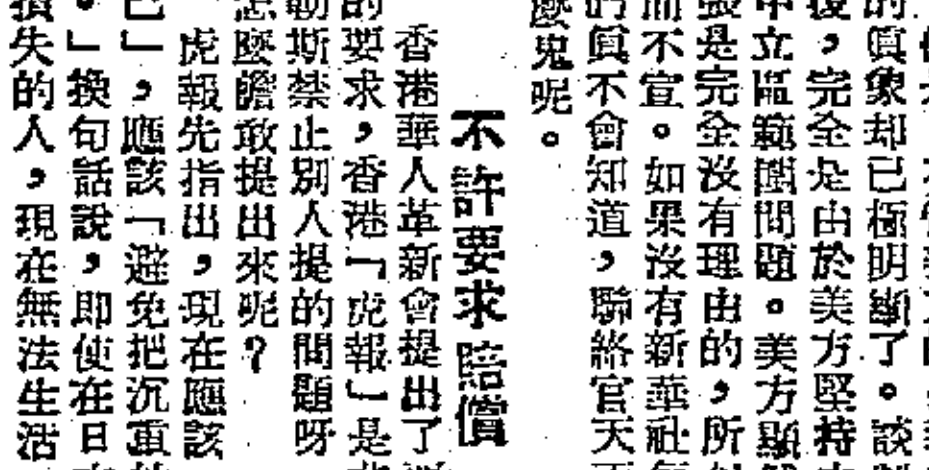 的真象却已極明顯了。談
後，完全是由於美方堅持
中立區範圍問題。美方顯
張是完全沒有理由的，所
而不宣。如果沒有新華社
們眞不會知道，聯絡官天
麼鬼呢。
不許要求賠償
香港華人革新會提出了
的要求，香港「虎報」是
勒斯禁止別人提的問題呀
怎麼膽敢提出來呢？
虎報先指出，現在應該
已」，應該「避免把沉重
。」換句話說，即使在日
損失的人，現在無法生活